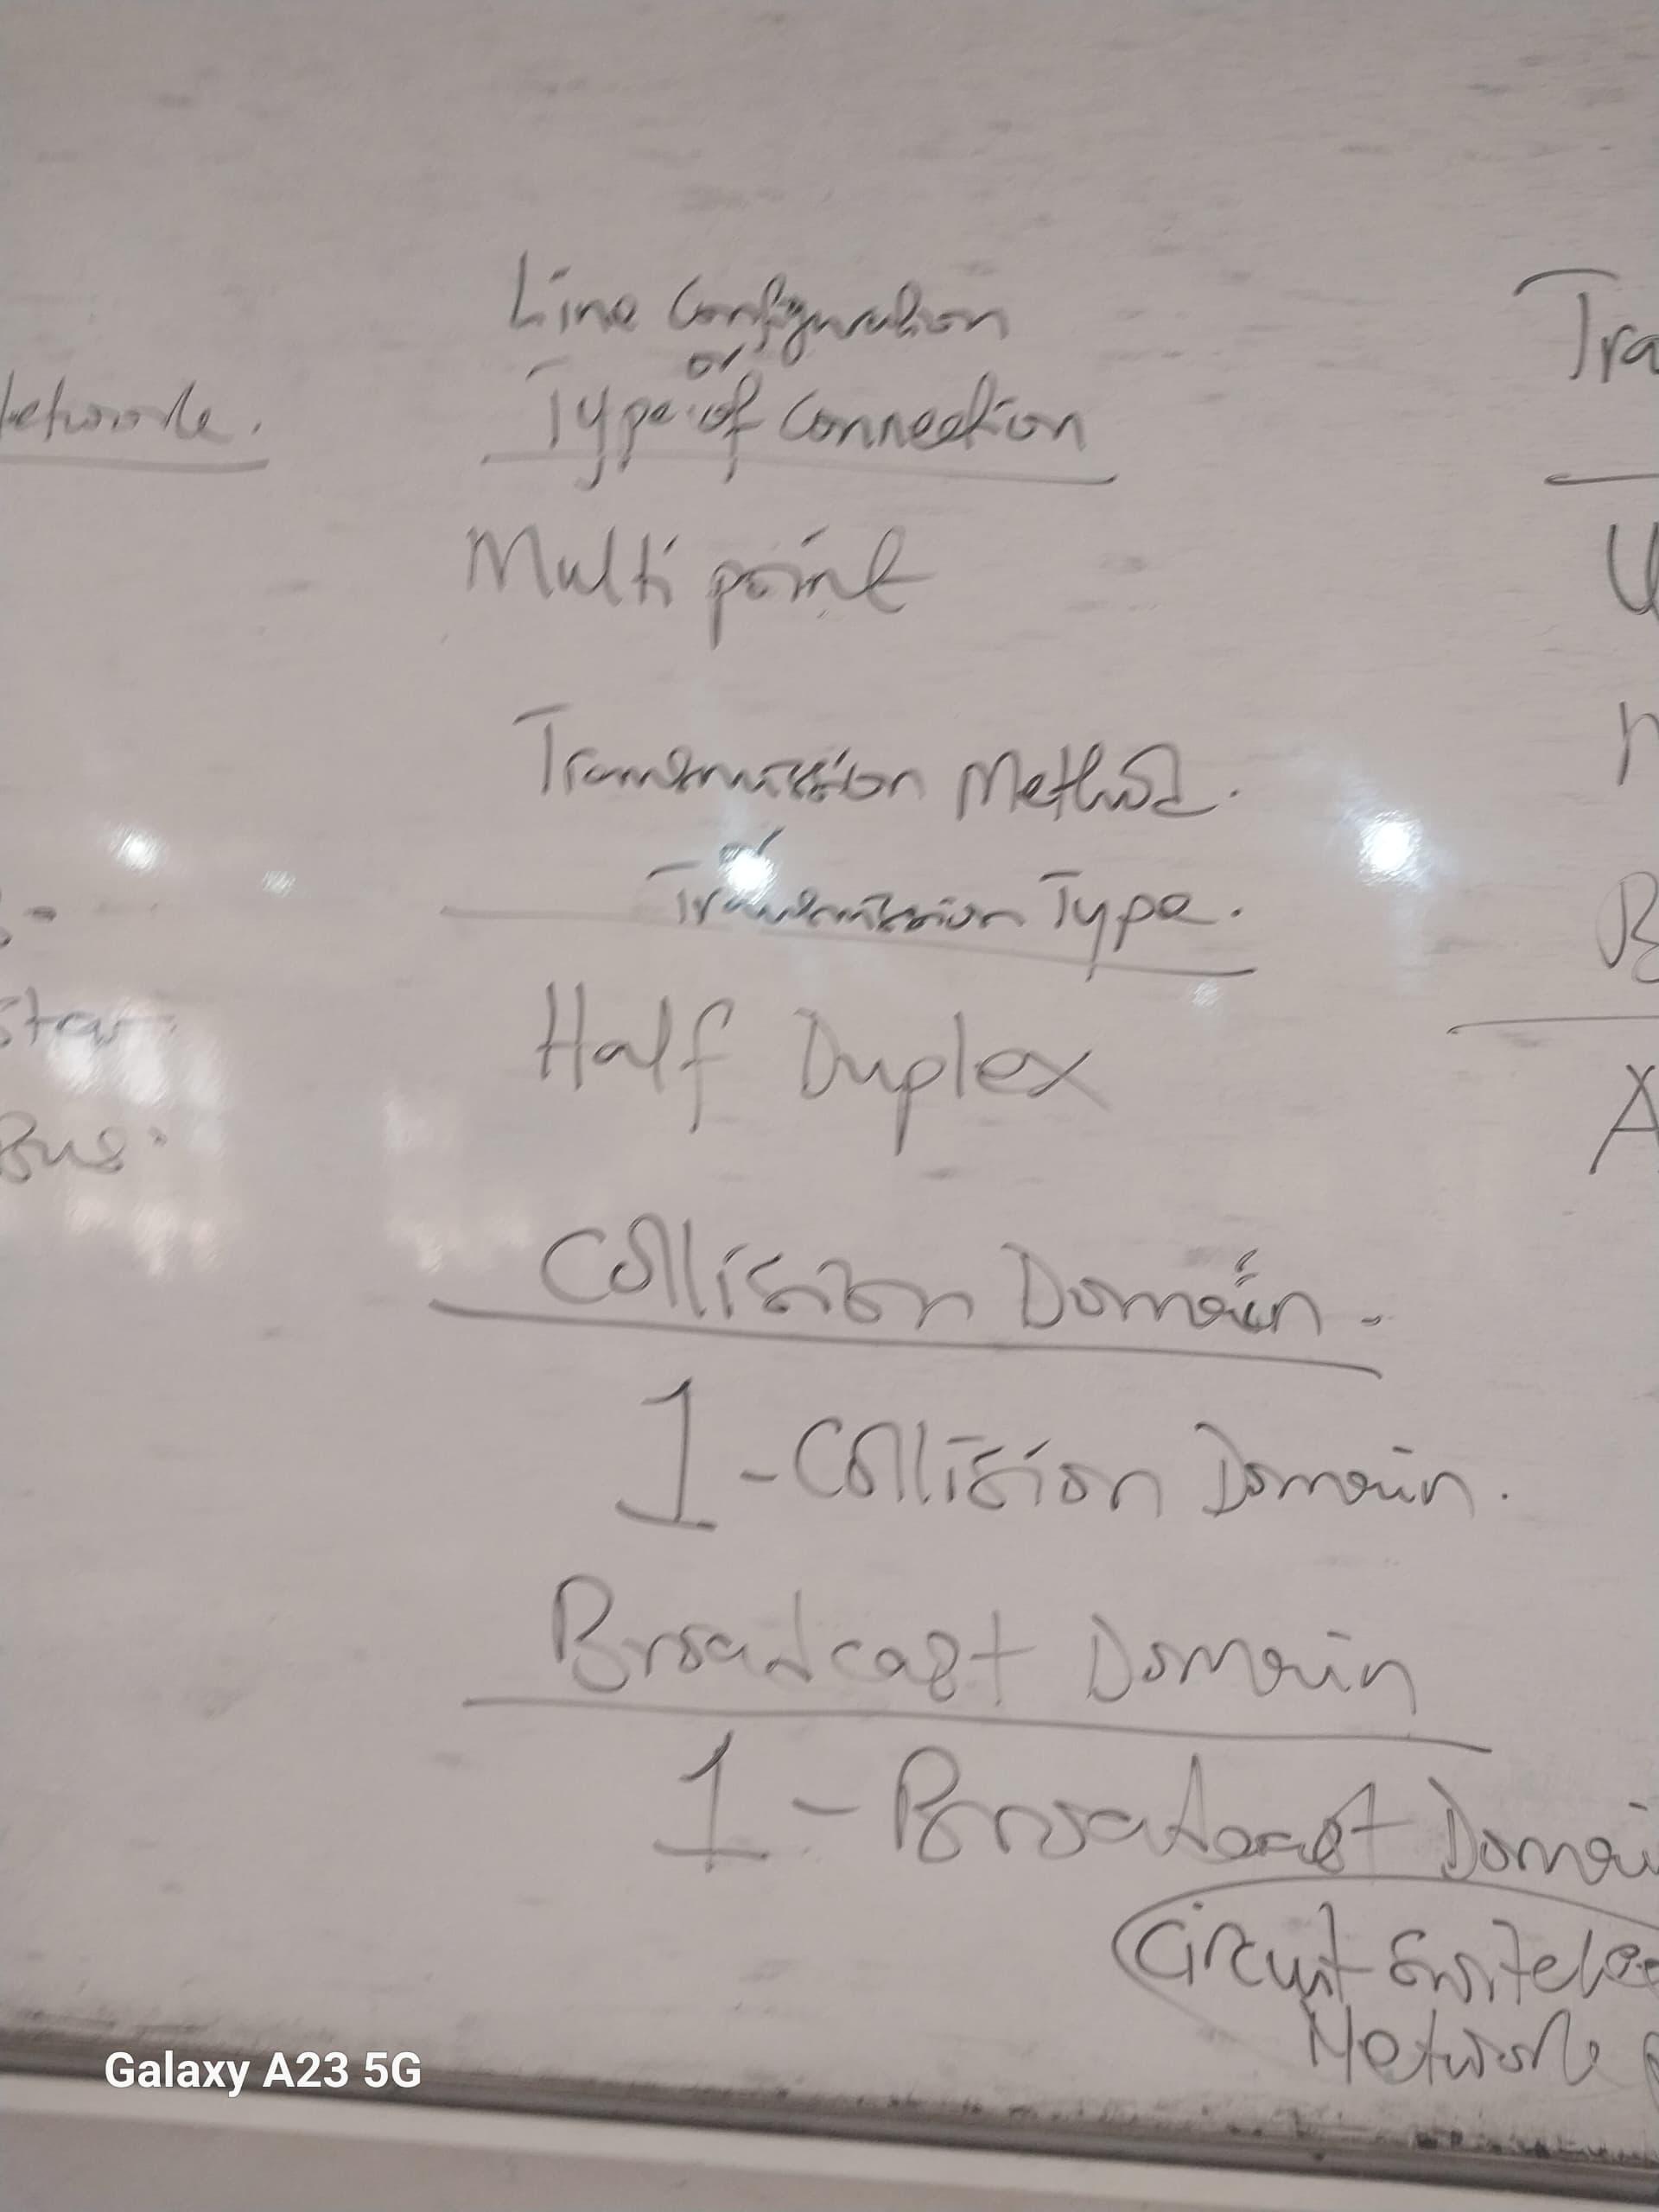 Line Configuration
or
Type of Connection
Multi point
Transmission Method.
or
Transmission Type.
Half Duplex
Collision Domain.
1 - Collision Domain.
Broadcast Domain
1 - Broadcast Domai
Circuit
Network
Network.
Star
Bus.
Tra
U
B
A
Galaxy A23 5G